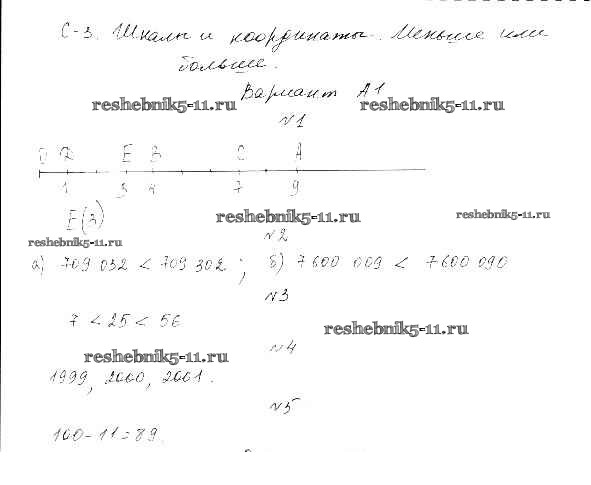 С-3. Шкалы и координаты. Меньше или
больше.
Вариант А1
reshebnik5-11.ru reshebnik5-11.ru
№1
0 D E B C A
1 3 4 7 9
E(3)
reshebnik5-11.ru reshebnik5-11.ru
№2
reshebnik5-11.ru
а) 709 032 < 709 302; б) 7 600 009 < 7 600 090
№3
7 < 25 < 56
reshebnik5-11.ru
№4
reshebnik5-11.ru
1999, 2000, 2001.
№5
100-11=89.